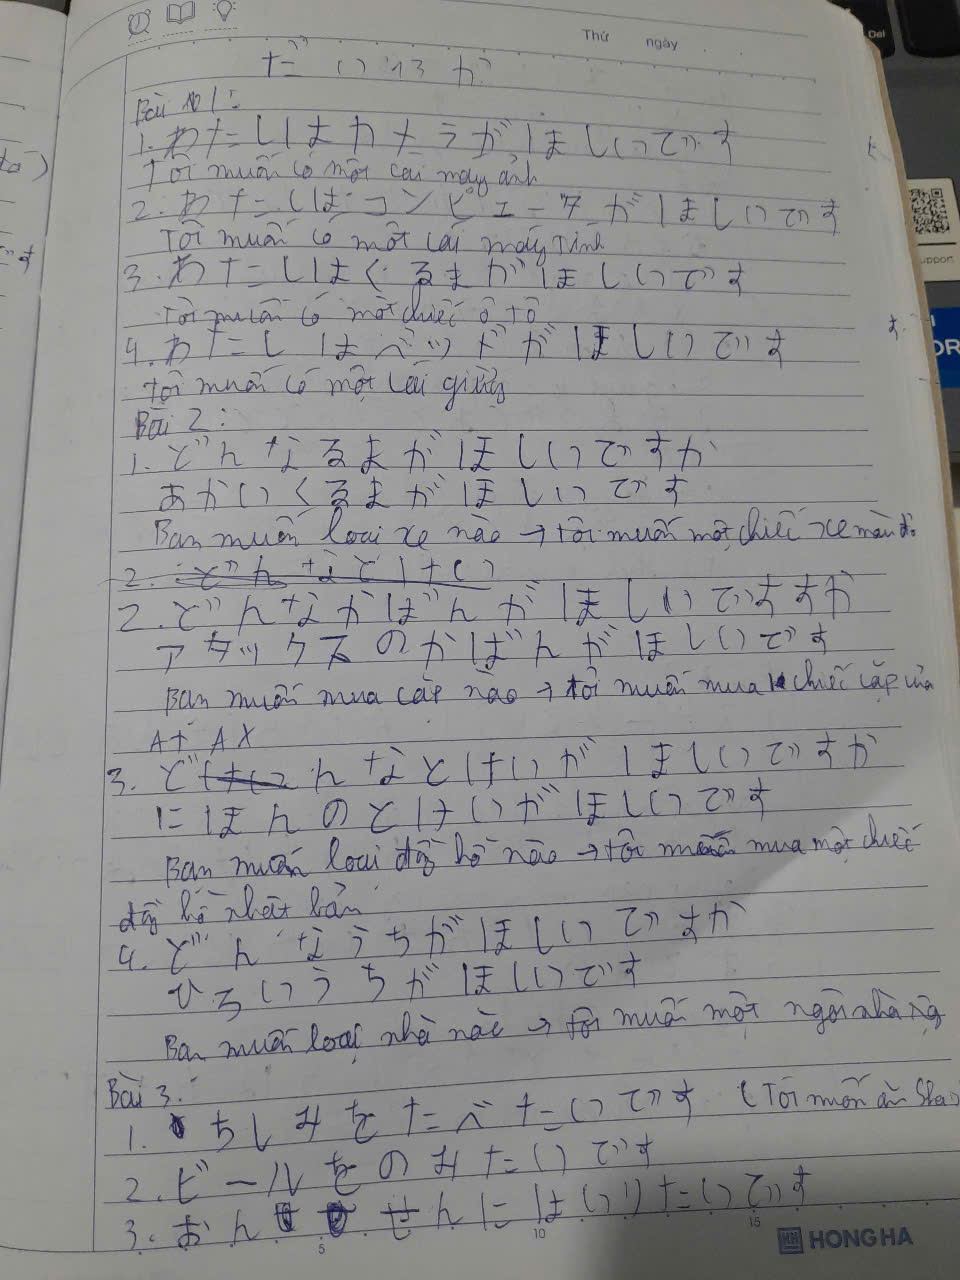 Thứ ngày
だい13か
Bài 1:
1. わたしはカメラがほしいです
Tôi muốn có một cái máy ảnh
2. わたしはコンピュータがほしいです
Tôi muốn có một cái máy tính
3. わたしはくるまがほしいです
Tôi muốn có một chiếc ô tô
4. わたしはベッドがほしいです
tôi muốn có một cái giường
Bài 2:
1. どんなるまがほしいですか
あかいくるまがほしいです
Bạn muốn loại xe nào → tôi muốn một chiếc xe màu đỏ
2. どんなとけい
2. どんなかばんがほしいですすか
アタックスのかばんがほしいです
Bạn muốn mua cặp nào → tôi muốn mua 1 chiếc cặp của
A+ AX
3. どんなとけいがほしいですか
にほんのとけいがほしいです
Bạn muốn loại đồng hồ nào → tôi muốn mua một chiếc
đồng hồ nhật bản
4. どんなうちがほしいですか
ひろいうちがほしいです
Bạn muốn loại nhà nào → tôi muốn một ngôi nhà rộng
Bài 3:
1. ちしみをたべたいです (Tôi muốn ăn
2. ビールをのみたいです
3. おんせんにはいりたいです
5 10 15
HH HONG HA
Del
support